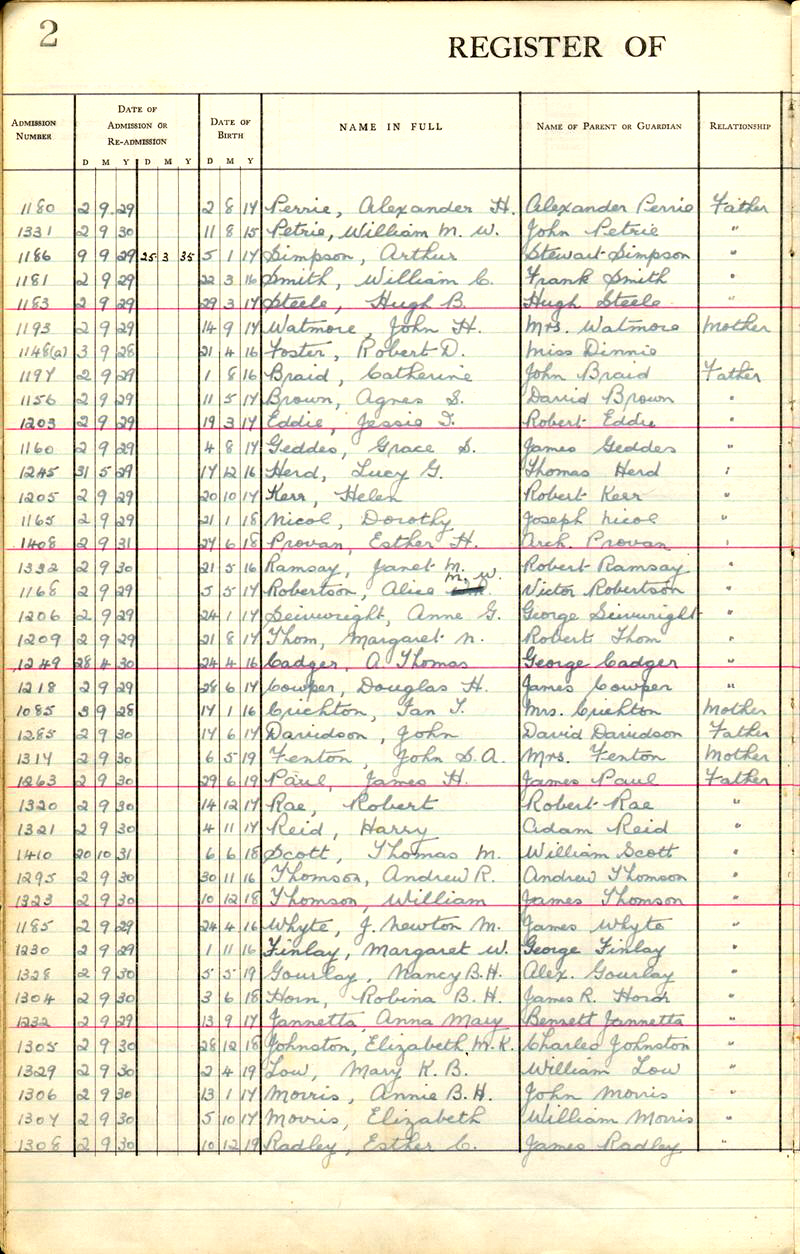 2
REGISTER OF
ADMISSION NUMBER DATE OF ADMISSION OR RE-ADMISSION DATE OF BIRTH NAME IN FULL NAME OF PARENT OR GUARDIAN RELATIONSHIP
D M Y D M Y D M Y
1180 2 9 29 2 8 17 Perrie, Alexander H. Alexander Perrie Father
1331 2 9 30 11 8 15 Petrie, William M. W. John Petrie "
1186 9 9 29 25 3 35 5 1 17 Simpson, Arthur Stewart Simpson "
1181 2 9 29 22 3 16 Smith, William C. Frank Smith "
1183 2 9 29 29 3 17 Steele, Hugh B. Hugh Steele "
1193 2 9 29 14 9 17 Watmore, John H. Mrs. Watmore Mother
1148(a) 3 9 28 21 4 16 Foster, Robert D. Miss Dinnie
1197 2 9 29 1 8 16 Braid, Catherine John Braid Father
1156 2 9 29 11 5 17 Brown, Agnes S. David Brown "
1203 2 9 29 19 3 17 Eddie, Jessie I. Robert Eddie "
1160 2 9 29 4 8 17 Geddes, Grace S. James Geddes "
1245 31 5 29 17 12 16 Herd, Lucy G. Thomas Herd "
1205 2 9 29 20 10 17 Kerr, Helen Robert Kerr "
1165 2 9 29 21 1 18 Nicol, Dorothy Joseph Nicol "
1408 2 9 31 27 6 18 Provan, Esther H. Arch. Provan "
1332 2 9 30 21 5 16 Ramsay, Janet M. Robert Ramsay "
1168 2 9 29 5 5 17 Robertson, Alice M. W. Victor Robertson "
1206 2 9 29 24 1 17 Seivwright, Anne G. George Seivwright "
1209 2 9 29 21 8 17 Thom, Margaret N. Robert Thom "
1249 28 4 30 24 4 16 Cadger, A Thomas George Cadger "
1218 2 9 29 28 6 17 Cowper, Douglas H. James Cowper "
1085 3 9 28 17 1 16 Crichton, Ian T. Mrs. Crichton Mother
1285 2 9 30 17 6 17 Davidson, John David Davidson Father
1317 2 9 30 6 5 19 Fenton, John S. A. Mrs. Fenton Mother
1263 2 9 30 29 6 19 Paul, James H. James Paul Father
1320 2 9 30 14 12 17 Rae, Robert Robert Rae "
1321 2 9 30 4 11 17 Reid, Harry Adam Reid "
1410 20 10 31 6 6 18 Scott, Thomas M. William Scott "
1295 2 9 30 30 11 16 Thomson, Andrew R. Andrew Thomson "
1323 2 9 30 10 12 18 Thomson, William James Thomson "
1185 2 9 29 24 4 16 Whyte, J. Newton M. James Whyte "
1230 2 9 29 1 11 16 Finlay, Margaret W. George Finlay "
1328 2 9 30 5 5 19 Gourlay, Nancy B. H. Alex. Gourlay "
1304 2 9 30 3 6 18 Horn, Robina B. H. James R. "
1232 2 9 29 13 9 17 Jannetta, Anna Mary Bennett Jannetta "
1305 2 9 30 28 12 18 Johnston, Elizabeth M. K. Charles Johnston "
1329 2 9 30 2 4 19 Low, Mary K. B. William Low "
1306 2 9 30 13 1 17 Morris, Annie B. H. John Morris "
1307 2 9 30 5 10 17 Morris, Elizabeth William Morris "
1308 2 9 30 10 12 19 Radley, Esther C. James Radley "